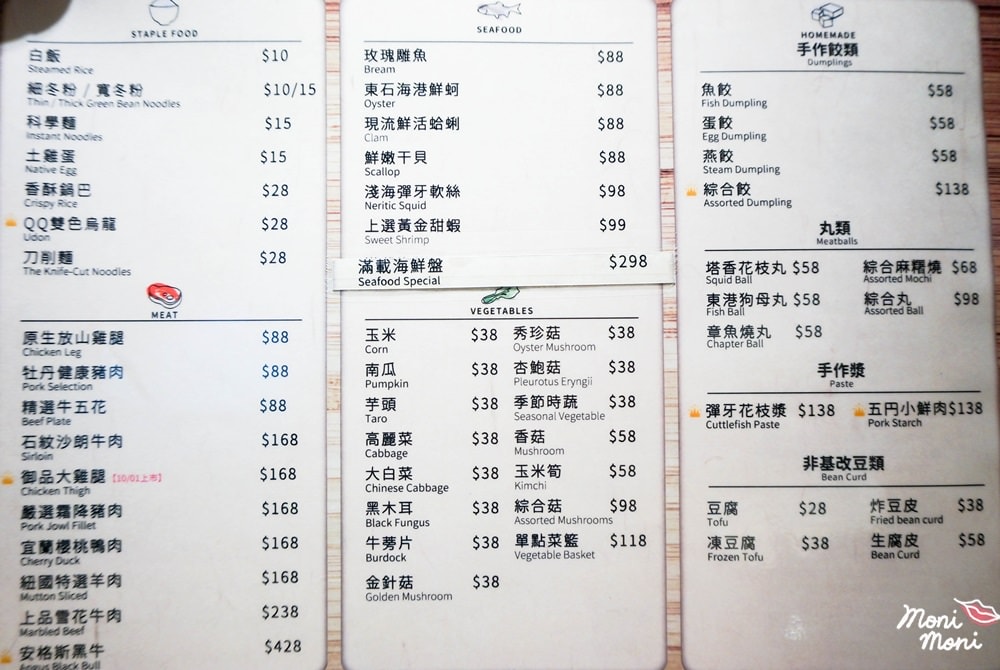 STAPLE FOOD
白飯 $10
Steamed Rice
細冬粉 / 寬冬粉 $10/15
Thin / Thick Green Bean Noodles
科學麵 $15
Instant Noodles
土雞蛋 $15
Native Egg
香酥鍋巴 $28
Crispy Rice
QQ雙色烏龍 $28
Udon
刀削麵 $28
The Knife-Cut Noodles
MEAT
原生放山雞腿 $88
Chicken Leg
牡丹健康豬肉 $88
Pork Selection
精選牛五花 $88
Beef Plate
石紋沙朗牛肉 $168
Sirloin
御品大雞腿【10/01上市】 $168
Chicken Thigh
嚴選霜降豬肉 $168
Pork Jowl Fillet
宜蘭櫻桃鴨肉 $168
Cherry Duck
紐國特選羊肉 $168
Mutton Sliced
上品雪花牛肉 $238
Marbled Beef
安格斯黑牛 $428
Angus Black Bull
SEAFOOD
玫瑰雕魚 $88
Bream
東石海港鮮蚵 $88
Oyster
現流鮮活蛤蜊 $88
Clam
鮮嫩干貝 $88
Scallop
淺海彈牙軟絲 $98
Neritic Squid
上選黃金甜蝦 $99
Sweet Shrimp
滿載海鮮盤 $298
Seafood Special
VEGETABLES
玉米 $38 秀珍菇 $38
Corn Oyster Mushroom
南瓜 $38 杏鮑菇 $38
Pumpkin Pleurotus Eryngii
芋頭 $38 季節時蔬 $38
Taro Seasonal Vegetable
高麗菜 $38 香菇 $58
Cabbage Mushroom
大白菜 $38 玉米筍 $58
Chinese Cabbage Kimchi
黑木耳 $38 綜合菇 $98
Black Fungus Assorted Mushrooms
牛蒡片 $38 單點菜籃 $118
Burdock Vegetable Basket
金針菇 $38
Golden Mushroom
HOMEMADE
手作餃類
Dumplings
魚餃 $58
Fish Dumpling
蛋餃 $58
Egg Dumpling
燕餃 $58
Steam Dumpling
綜合餃 $138
Assorted Dumpling
丸類
Meatballs
塔香花枝丸 $58 綜合麻糬燒 $68
Squid Ball Assorted Mochi
東港狗母丸 $58 綜合丸 $98
Fish Ball Assorted Ball
章魚燒丸 $58
Chapter Ball
手作漿
Paste
彈牙花枝漿 $138 五円小鮮肉 $138
Cuttlefish Paste Pork Starch
非基改豆類
Bean Curd
豆腐 $28 炸豆皮 $38
Tofu Fried bean curd
凍豆腐 $38 生腐皮 $58
Frozen Tofu Bean Curd
Moni
Moni